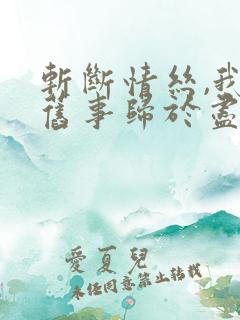 斬斷情絲,我
舊事歸於盡
愛夏兒
未經同意禁止轉載